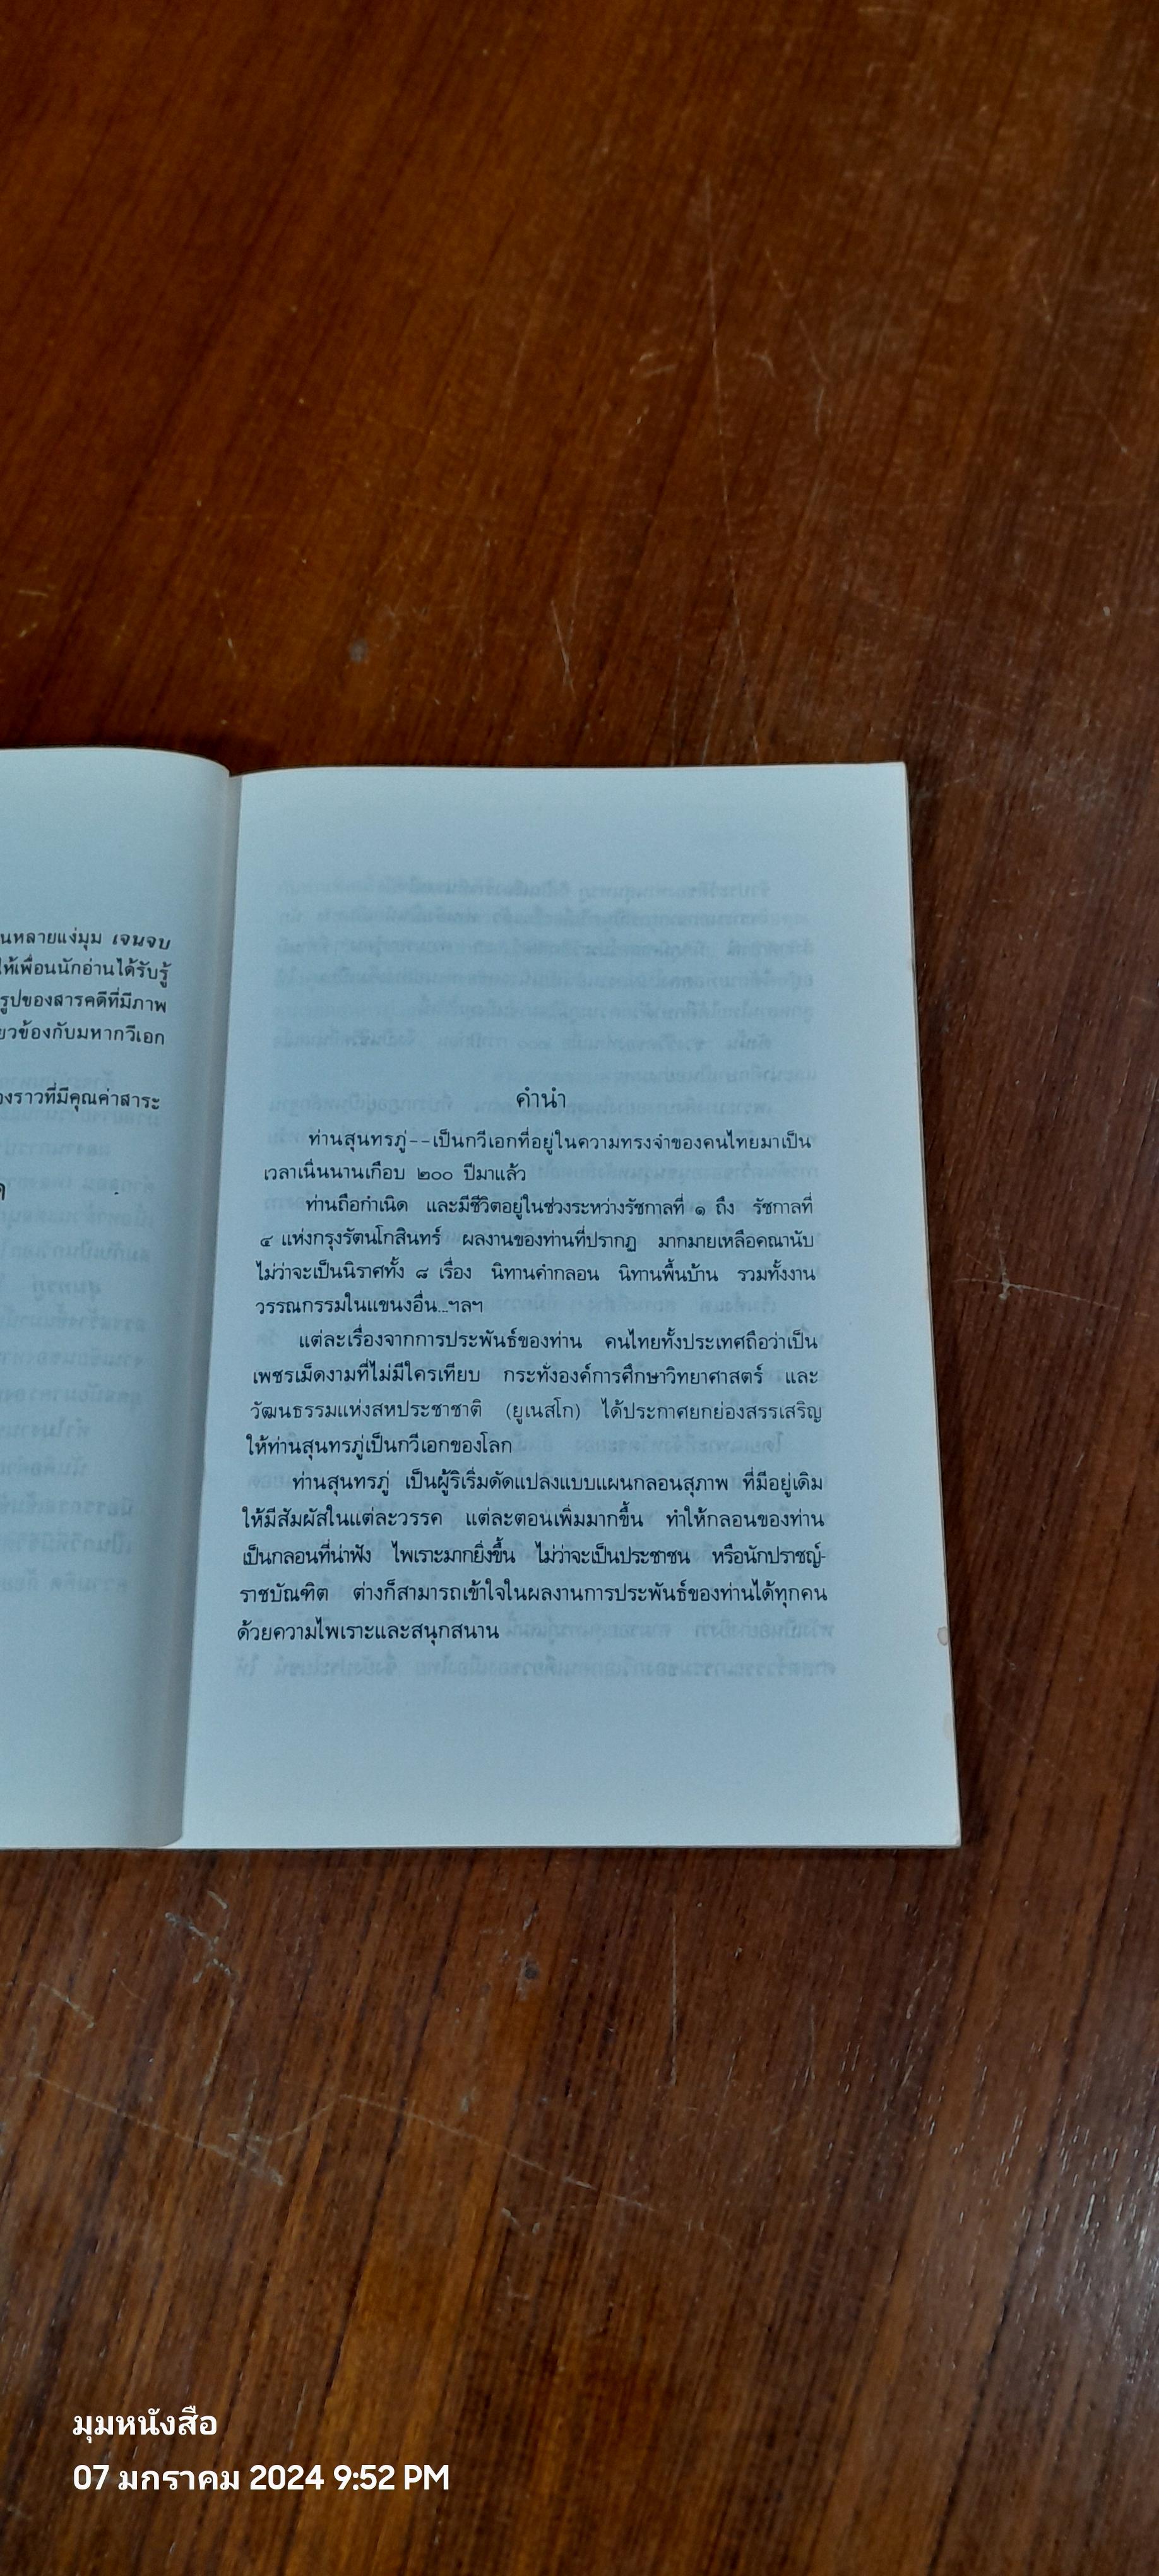 นหลายแง่มุม เจนจบ
ให้เพื่อนนักอ่านได้รับรู้
รูปของสารคดีที่มีภาพ
ยวข้องกับมหากวีเอก
องราวที่มีคุณค่าสาระ
คำนำ
ท่านสุนทรภู่--เป็นกวีเอกที่อยู่ในความทรงจำของคนไทยมาเป็น
เวลาเนิ่นนานเกือบ ๒๐๐ ปีมาแล้ว
ท่านถือกำเนิด และมีชีวิตอยู่ในช่วงระหว่างรัชกาลที่ ๑ ถึง รัชกาลที่
๔ แห่งกรุงรัตนโกสินทร์ ผลงานของท่านที่ปรากฏ มากมายเหลือคณานับ
ไม่ว่าจะเป็นนิราศทั้ง ๘ เรื่อง นิทานคำกลอน นิทานพื้นบ้าน รวมทั้งงาน
วรรณกรรมในแขนงอื่น...ฯลฯ
แต่ละเรื่องจากการประพันธ์ของท่าน คนไทยทั้งประเทศถือว่าเป็น
เพชรเม็ดงามที่ไม่มีใครเทียบ กระทั่งองค์การศึกษาวิทยาศาสตร์ และ
วัฒนธรรมแห่งสหประชาชาติ (ยูเนสโก) ได้ประกาศยกย่องสรรเสริญ
ให้ท่านสุนทรภู่เป็นกวีเอกของโลก
ท่านสุนทรภู่ เป็นผู้ริเริ่มดัดแปลงแบบแผนกลอนสุภาพ ที่มีอยู่เดิม
ให้มีสัมผัสในแต่ละวรรค แต่ละตอนเพิ่มมากขึ้น ทำให้กลอนของท่าน
เป็นกลอนที่น่าฟัง ไพเราะมากยิ่งขึ้น ไม่ว่าจะเป็นประชาชน หรือนักปราชญ์-
ราชบัณฑิต ต่างก็สามารถเข้าใจในผลงานการประพันธ์ของท่านได้ทุกคน
ด้วยความไพเราะและสนุกสนาน
มุมหนังสือ
07 มกราคม 2024 9:52 PM